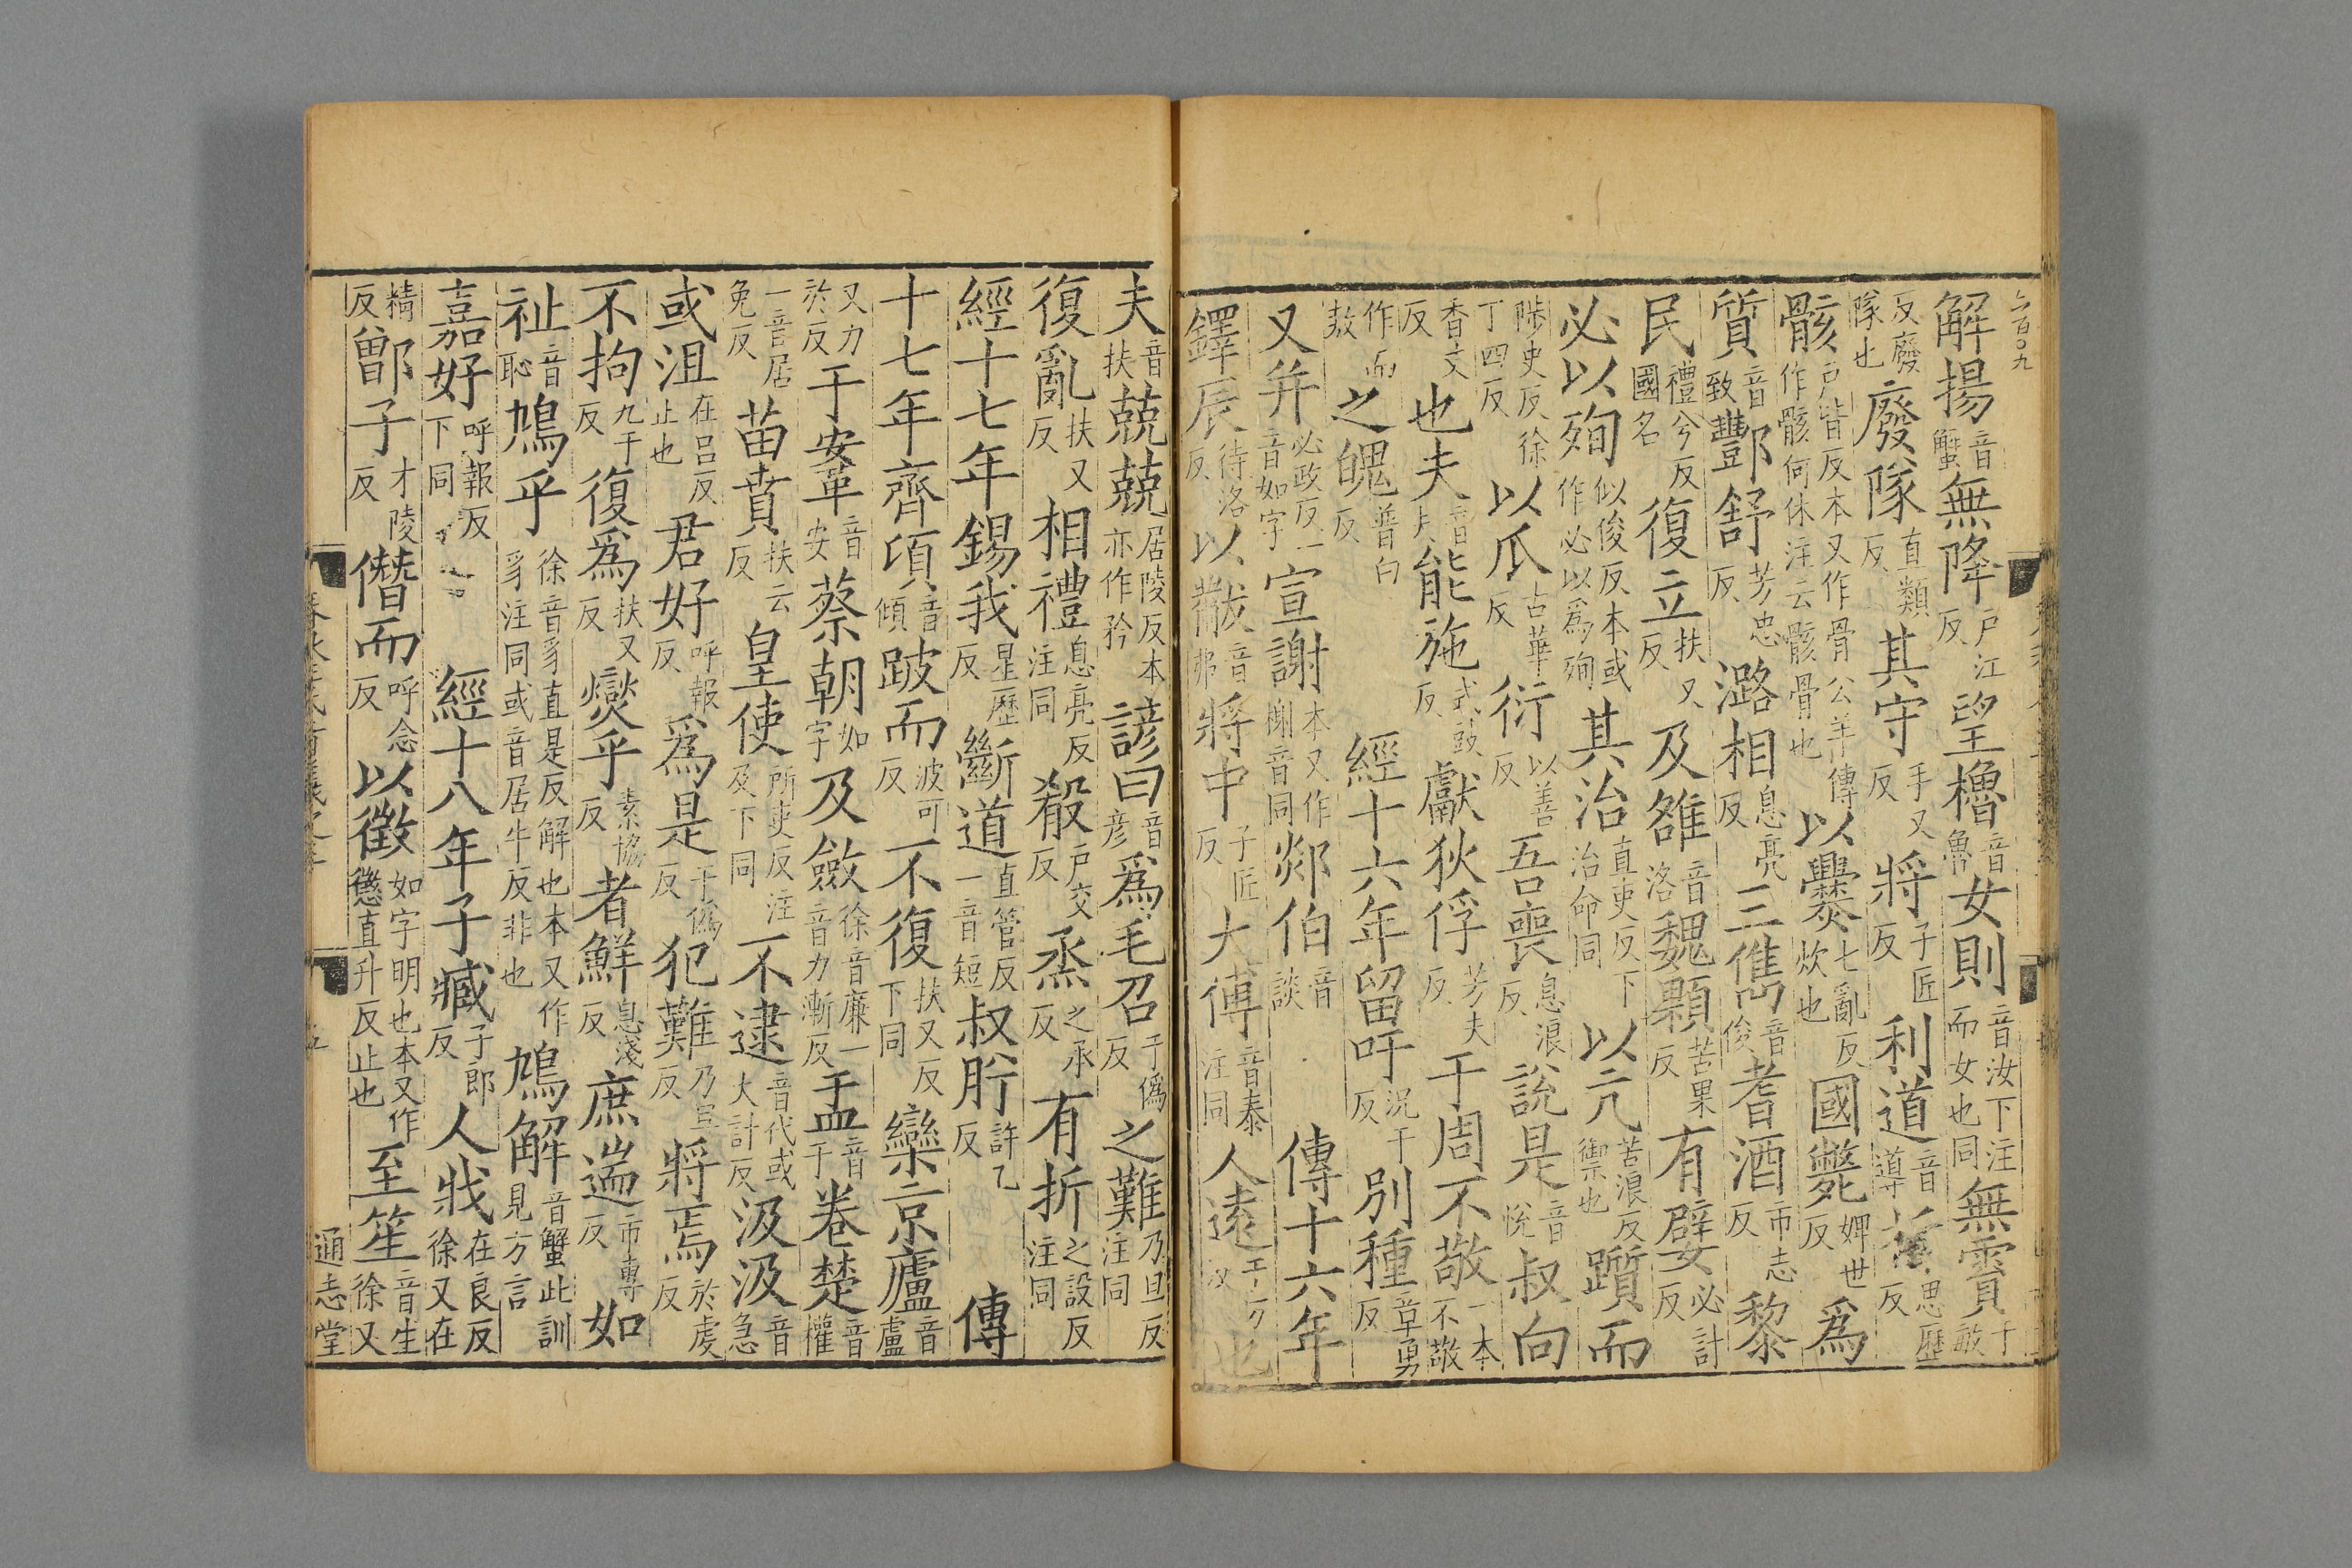 六百〇九
解揚音蟹無降戶江反望櫓音魯女則音汝下注而女也同無霣于敏
反廢隊也廢隊直類反其守手又反將子匠反利道音導思歷反
骸戶皆反本又作骨公羊傳作骸何休注云骸骨也以爨七亂反炊也國斃婢世反為
質音致酆舒芳忠反潞相息亮反三儁音俊耆酒市志反黎
民禮兮反國名復立扶又反及雒音洛魏顆苦果反有嬖必計反
必以殉似俊反本或作必以為殉其治直吏反下治命同以亢苦浪反禦也躓而
陟吏反徐丁四反以瓜古華反衍以善反吾喪息浪反說是音悅叔向
香丈反也夫音扶能施式豉反獻狄俘芳夫反于周不敬一本作不敬
作而敖之魄普白反經十六年留吁況于反別種章勇反
又并必政反一音如字宣謝本又作榭音同郯伯音談傳十六年
鐸辰待洛反以黻音弗將中子匠反大傅音泰注同人遠
夫音扶兢兢居陵反本亦作矜諺曰音彦為毛召于偽反之難乃旦反注同
復亂扶又反相禮息亮反注同殽戶交反烝之承反有折之設反注同
經十七年錫我星歷反斷道直管反一音短叔肸許乙反傳
十七年齊頃音傾跛而波可反不復扶又反下同欒京廬音盧
又力於反于峯音安蔡朝如字及斂徐音廉一音力漸反盂音于卷楚音權
一音居免反苗賁扶云反皇使所吏反注及下同不逮音代或大計反汲汲音急
或沮在呂反止也君好呼報反為是于偽反犯難乃旦反將焉於虔反
不拘九于反復為扶又反燮乎素協反者鮮息淺反庶遄市專反如
祉音恥鳩乎徐音豸直是反解也本又作豸注同或音居牛反非也鳩解音蟹此訓見方言
嘉好呼報反下同經十八年子臧子郎反人戕在良反徐又在
精反鄫子才陵反僭而呼念反以徵如字明也本又作懲直升反止也至笙音生徐又
通志堂